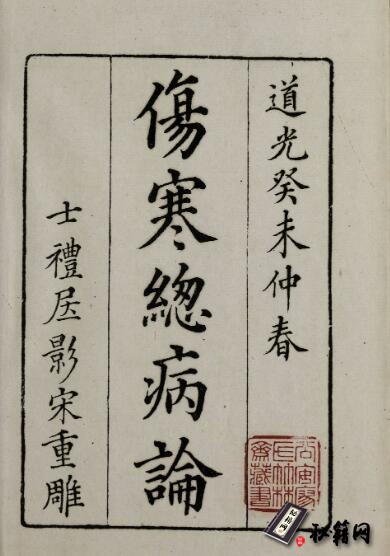 道光癸未仲春
傷寒緫病論
士禮居影宋重雕
秘籍网
秘籍网